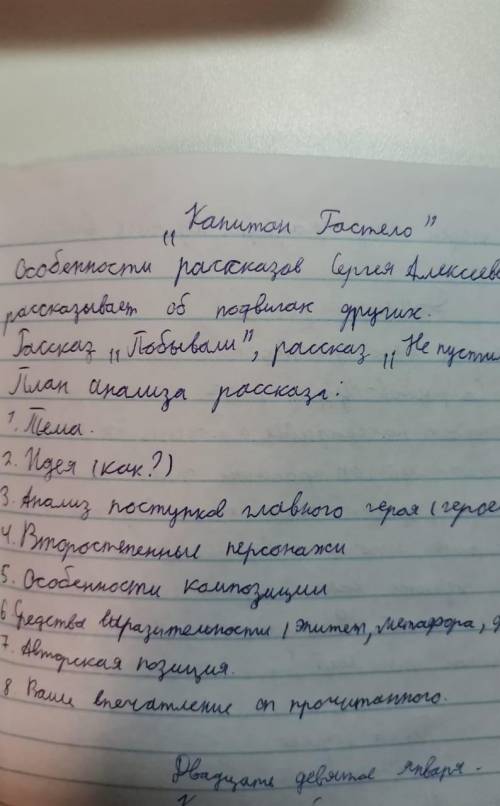 „Капитан Гастело"
Особенности рассказов Сергея Алексеев
рассказывает об подвигах других.
Рассказ „Побывали", рассказ „Не пустил
План анализа рассказа:
1. Тема.
2. Идея (как?)
3. Анализ поступков главного героя (герое
4. Второстепенные персонажи
5. Особенности композиции
6 Средства выразительности (эпитет, метафора,
7. Авторская позиция.
8. Ваше впечатление от прочитанного.
Двадцать девятое января.